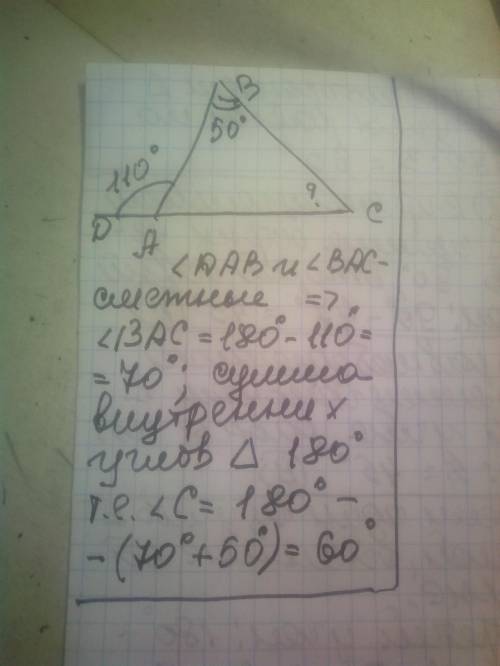 B
50°
110°
?
D
A
C
∠DAB и ∠BAC -
смежные =>
∠BAC = 180° - 110° =
= 70°; сумма
внутренних
углов Δ 180°
т.е. ∠C = 180° -
- (70° + 50°) = 60°